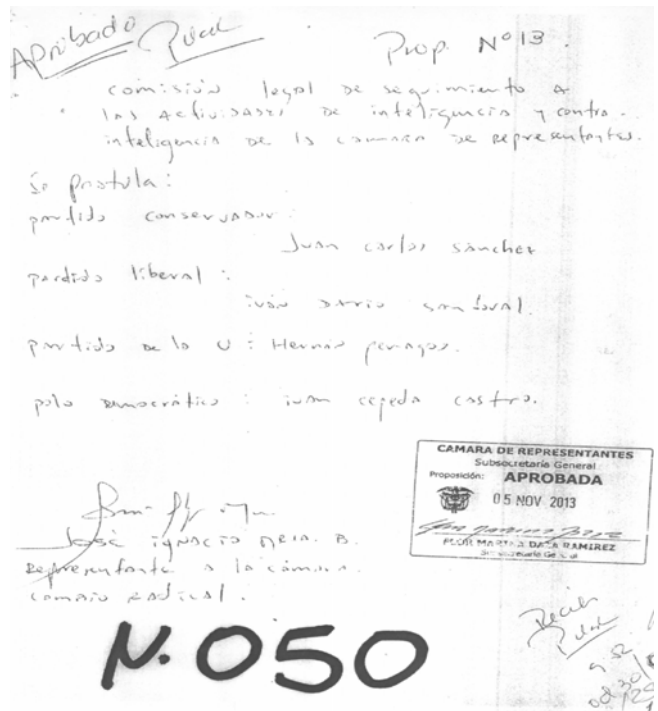 Aprobado
Prop. Nº 13.
comisión legal de seguimiento a
las actividades de inteligencia y contra-
inteligencia de la camara de representantes.
Se postula:
partido conservador:
Juan carlos sanchez
partido liberal:
ivan Dario sandoval.
partido de la U: Hernan penagos.
polo Democrático: ivan cepeda castro.
CAMARA DE REPRESENTANTES
Subsecretaría General
Proposición: APROBADA
05 NOV 2013
FLOR MARINA DAZA RAMIREZ
Subsecretaria General
José ignacio B.
Representante a la cámara.
cambio Radical.
N.050